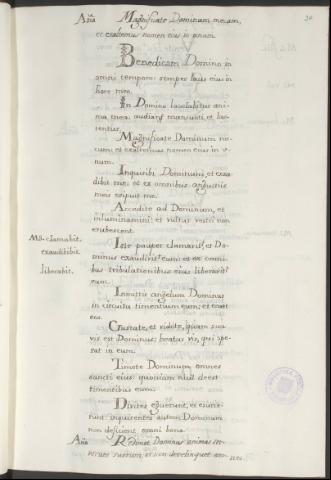 Aña Magnificate Dominum mecum,
et exaltemus nomen eius in unum.
Benedicam Domino in
omni tempore: semper laus eius in
hore meo.
In Domino laudabitur ani
ma mea: audiant mansueti et lae
tentur.
Magnificate Dominum me
cum: et exaltemus nomen eius in v
num.
Inquisibi Dominum, et exau
dibit me: et ex omnibus angustiis
meis eripuit me.
Accedite ad Dominum, et
inluminamini: et vultus vestri non
erubescent.
Ms. clamabit. Iste pauper clamavit, et Do
exaudibit. minus exaudivit eum: et ex omni
liberabit. bus tribulationibus eius liberavit
eum.
Inmittit angelum Dominus
in circuitu timentium eum: et
eos.
Gustate, et videte, quam sua
vis est Dominus: beatus vir, qui spe
rat in eum.
Timete Dominum omnes
sancti eius: quoniam nihil deest
timentibus eum.
Divites eguerunt, et esurie
runt: inquirentes autem Dominum
non deficient omni bono.
Aña Redimet Dominus animas ser
vorum suorum, et non derelinquet om
nes